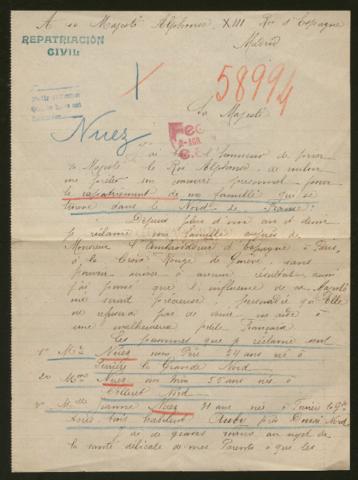 A sa Majesté Alphonse XIII Roi d'Espagne
Madrid
REPATRIACIÓN
CIVIL
58994
Sa Majesté
Nuez
l'honneur de
sa Majesté le Roi Alphonse, de
me prêter son concours personnel pour
le rapatriement de ma famille qui se
trouve dans le Nord de France
Depuis plus d'un an et demi
je réclame ma famille auprès de
Monsieur l'Ambassadeur d'Espagne à Paris,
à la Croix Rouge de Genève, sans
pouvoir arriver à aucun résultat aussi
j'ai pensé que l'influence de sa Majesté
me serait précieuse, persuadée qu'Elle
ne refusera pas de venir en aide à
une malheureuse petite Française
Les personnes que je réclame sont
1º Mr Nuez mon Père 59 ans né à
Ferrière la Grande Nord
2º Mme Nuez ma Mère 55 ans née à
Colleret Nord
3º Mlle Jeanne Nuez 31 ans née à Ferrière la Gde
tous habitent Aube près Douai Nord
de graves au sujet de
la santé délicate de mes Parents à que les